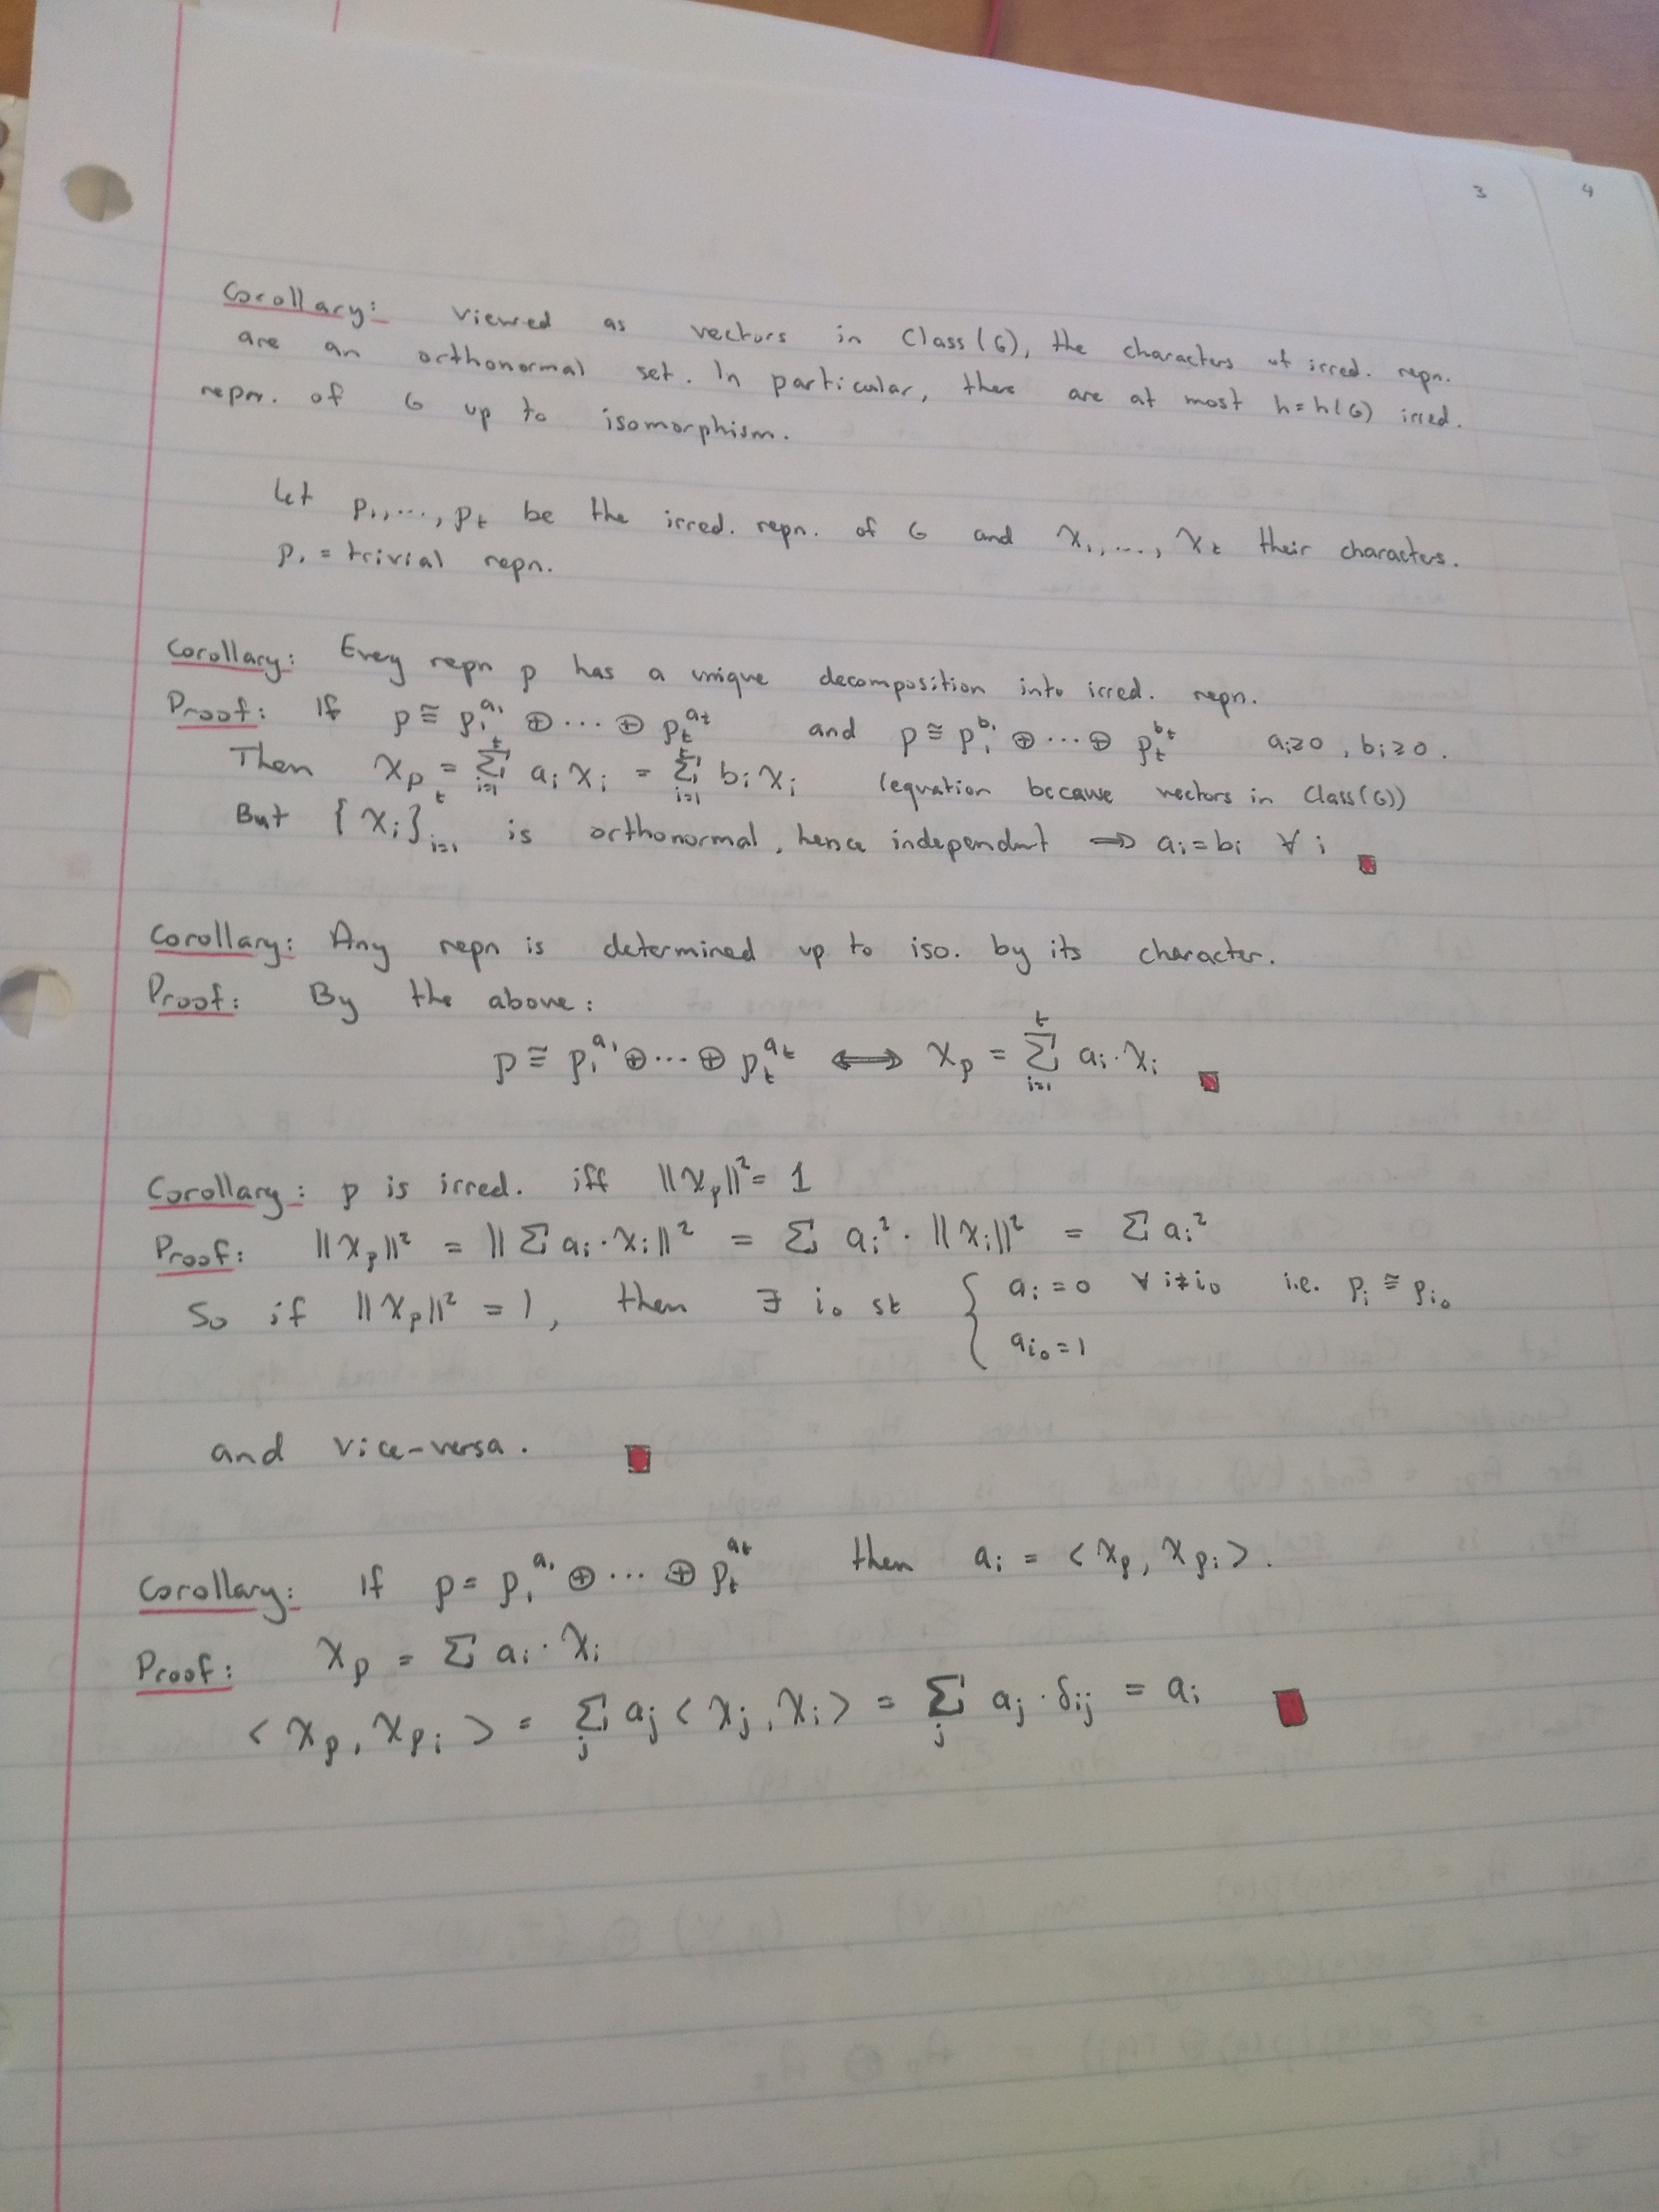 3 4
Corollary: viewed as vectors in Class(G), the characters of irred. repn.
are an orthonormal set. In particular, there are at most h=h(G) irred.
repn. of G up to isomorphism.
Let ρ₁,..., ρₜ be the irred. repn. of G and χ₁,..., χₜ their characters.
ρ₁ = trivial repn.
Corollary: Every repn ρ has a unique decomposition into irred. repn.
Proof: If ρ ≅ ρ₁^{a₁} ⊕ ... ⊕ ρₜ^{aₜ} and ρ ≅ ρ₁^{b₁} ⊕ ... ⊕ ρₜ^{bₜ} aᵢ≥0, bᵢ≥0.
Then χ_ρ = Σ_{i=1}^{t} aᵢ χᵢ = Σ_{i=1}^{t} bᵢ χᵢ (equation because vectors in Class(G))
But {χᵢ}_{i=1}^{t} is orthonormal, hence independent ⇒ aᵢ=bᵢ ∀ i
Corollary: Any repn is determined up to iso. by its character.
Proof: By the above:
ρ ≅ ρ₁^{a₁} ⊕ ... ⊕ ρₜ^{aₜ} ⟺ χ_ρ = Σ_{i=1}^{t} aᵢ · χᵢ
Corollary: ρ is irred. iff ||χ_ρ||² = 1
Proof: ||χ_ρ||² = ||Σ aᵢ · χᵢ||² = Σ aᵢ² · ||χᵢ||² = Σ aᵢ²
So if ||χ_ρ||² = 1, then ∃ i₀ st { aᵢ = 0 ∀ i≠i₀ i.e. ρᵢ ≅ ρ_{i₀}
a_{i₀} = 1
and vice-versa.
Corollary: If ρ = ρ₁^{a₁} ⊕ ... ⊕ ρₜ^{aₜ} then aᵢ = <χ_ρ, χ_{ρᵢ}>.
Proof: χ_ρ = Σ aᵢ · χᵢ
<χ_ρ, χ_{ρᵢ}> = Σ_j aⱼ <χⱼ, χᵢ> = Σ_j aⱼ · δᵢⱼ = aᵢ